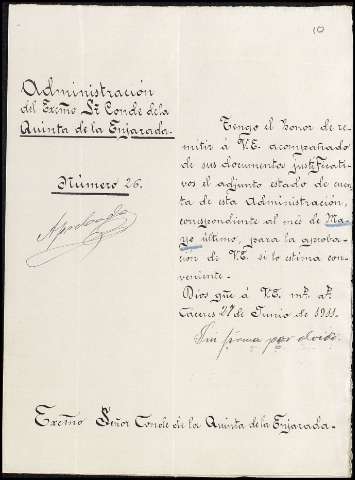 10
Administración
del Excmo Sr. Conde de la
Quinta de la Enjarada.
Número 26.
Aprobada
Tengo el honor de re-
mitir á V.E. acompañado
de sus documentos justificati-
vos el adjunto estado de cuen-
ta de esta Administración,
correspondiente al més de Ma-
yo último, para la aproba-
ción de V.E. si lo estima con-
veniente.
Dios gue á V.E. ms. as.
Cáceres 27 de Junio de 1911.
Sin firma por olvido.
Excmo Señor Conde de la Quinta de la Enjarada.